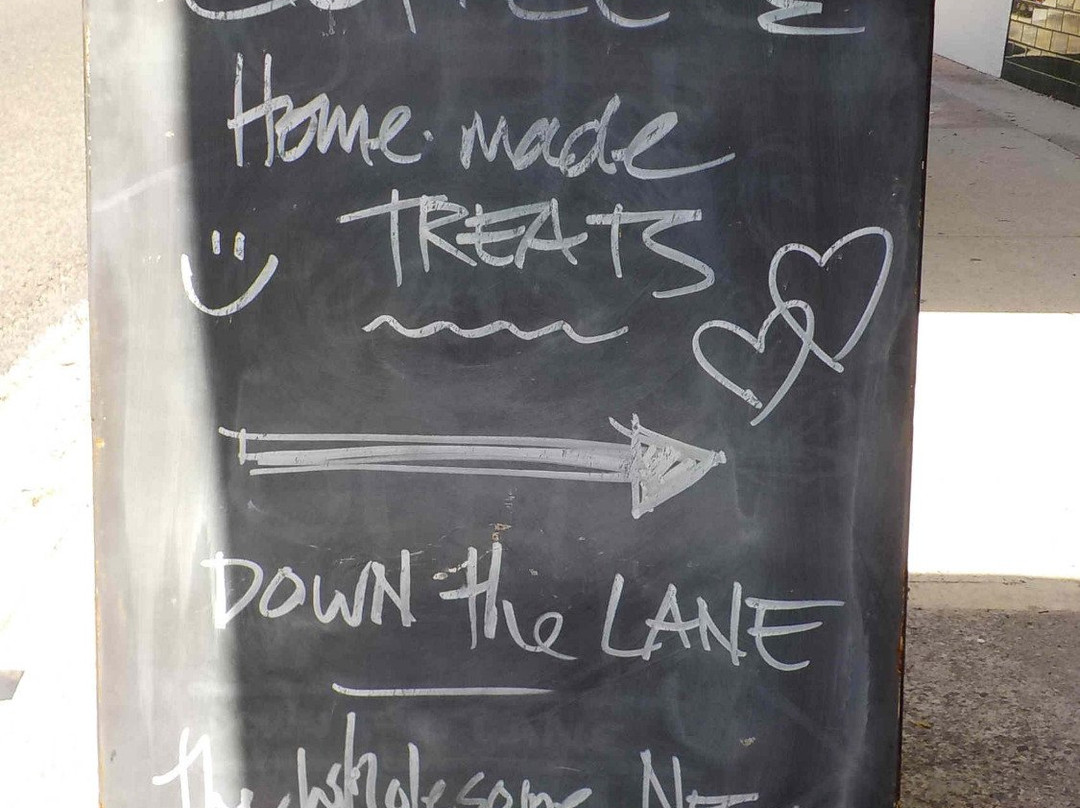 Home made
TREATS
DOWN the LANE
the wholesome